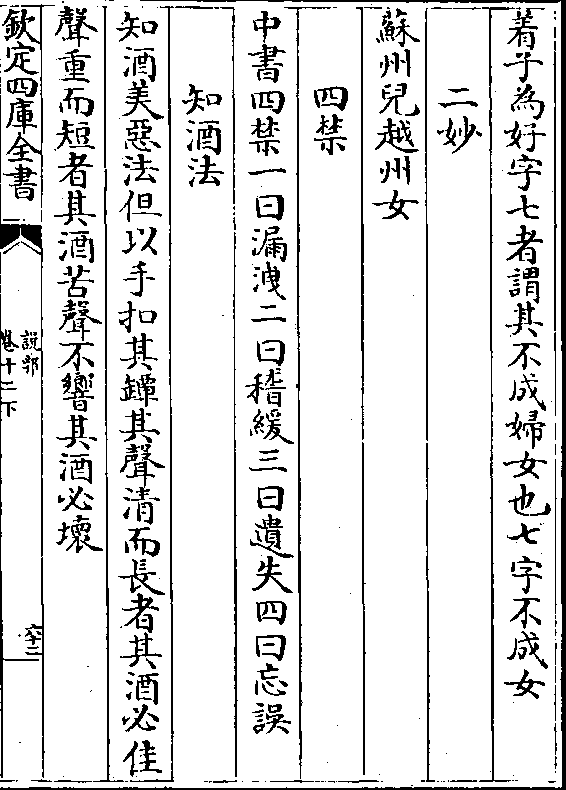 着子為好字七者謂其不成婦女也七字不成女
二妙
蘇州兒越州女
四禁
中書四禁一曰漏洩二曰稽緩三曰遺失四曰忘誤
知酒法
知酒美惡法但以手扣其罈其聲清而長者其酒必佳
聲重而短者其酒苦聲不響其酒必壞
欽定四庫全書
說郛
卷十二下
六十二